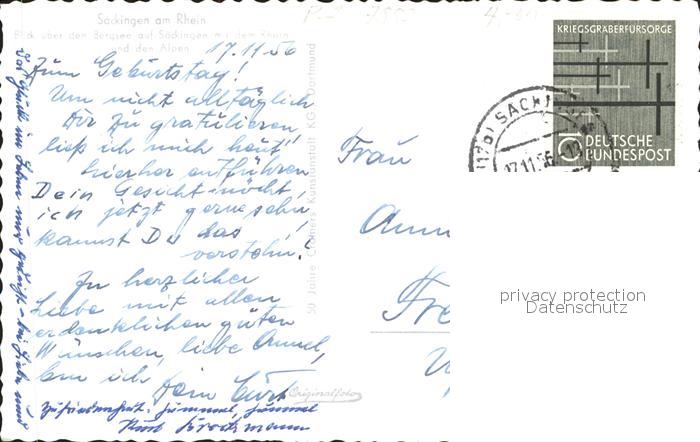 Säckingen am Rhein
Blick über den Bergsee auf Säckingen mit dem Rhein
und den Alpen
17.11.56
Zum Geburtstag!
Um nicht alltäglich
Dir zu gratulieren,
ließ ich mich heut'
hierher entführen
Dein Gesicht möcht'
ich jetzt gerne sehn,
kannst Du das
verstehn?
In herzlicher
Liebe mit allen
erdenklichen guten
Wünschen, liebe Annel,
bin ich Dein Curt
Zufriedenheit. Hümmel, Hümmel
Kurt
Das Glück im Leben nur gedeiht - bei Liebe und
50 Jahre Cramers Kunstanstalt KG Dortmund
Originalfoto
Frau
Ann
Fre
KRIEGSGRÄBERFÜRSORGE
10
DEUTSCHE
BUNDESPOST
SÄCK
17.11.56
privacy protection
Datenschutz